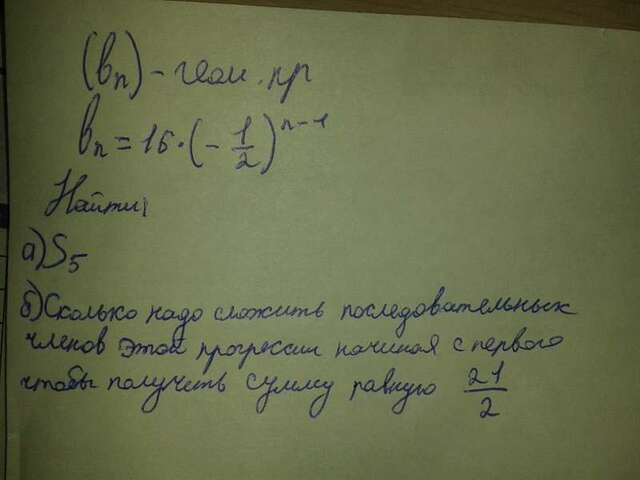 (bn) - геом. пр
bn = 16 · (- 1/2)^n-1
Найти:
а) S5
б) Сколько надо сложить последовательных
членов этой прогрессии начиная с первого
чтобы получить сумму равную 21/2